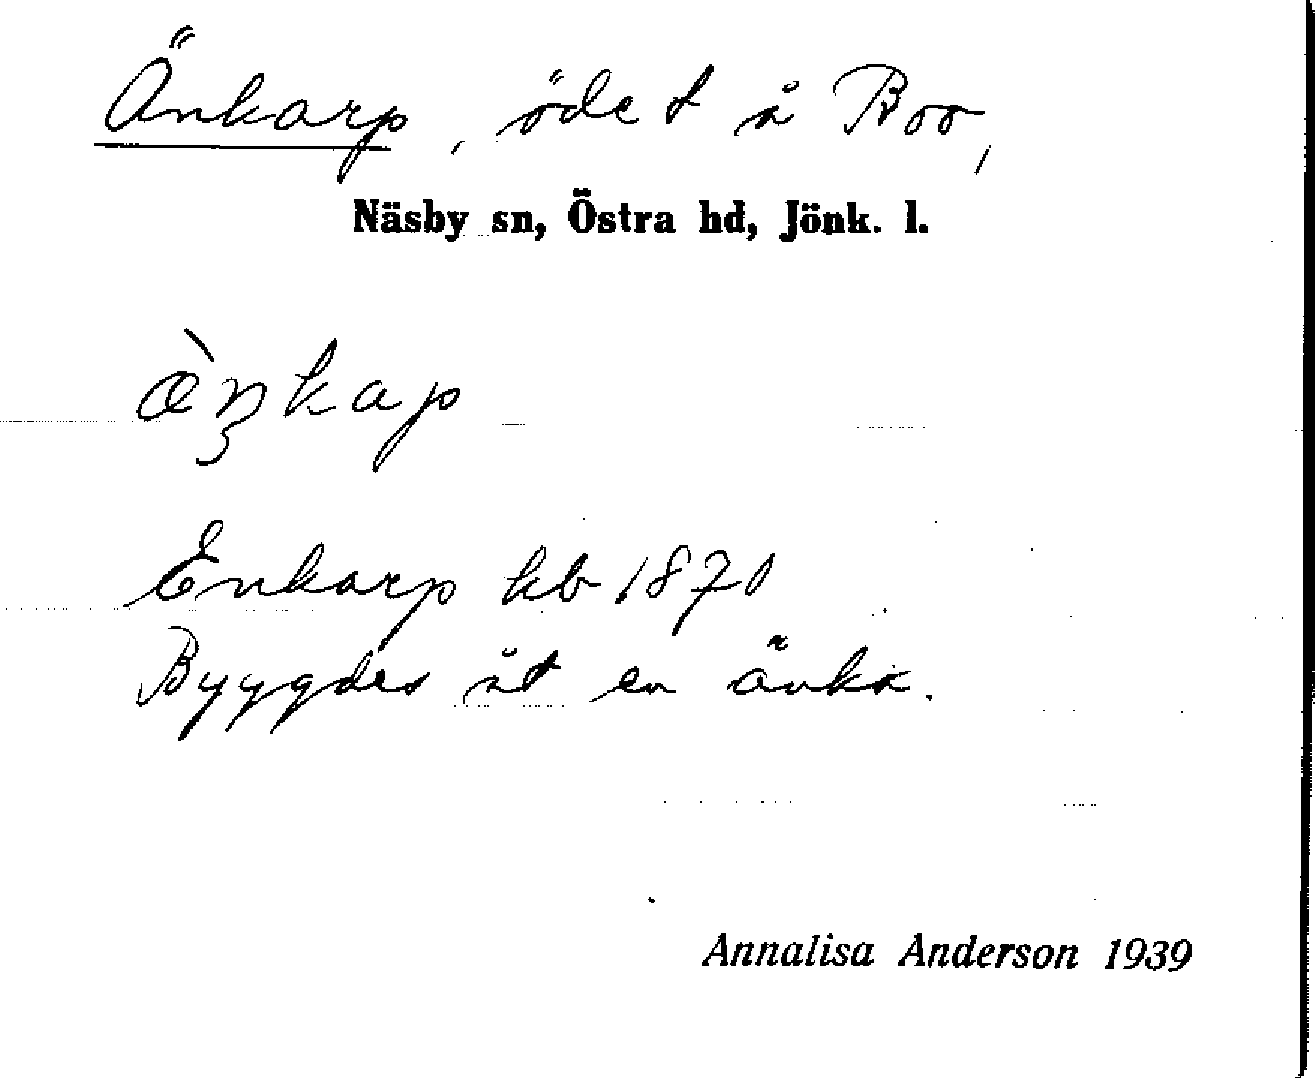 Änkarp, öde t å Boo,
Näsby sn, Östra hd, Jönk. l.
ænkap
Enkarp kb 1870
Byyggdes åt en änka.
Annalisa Anderson 1939